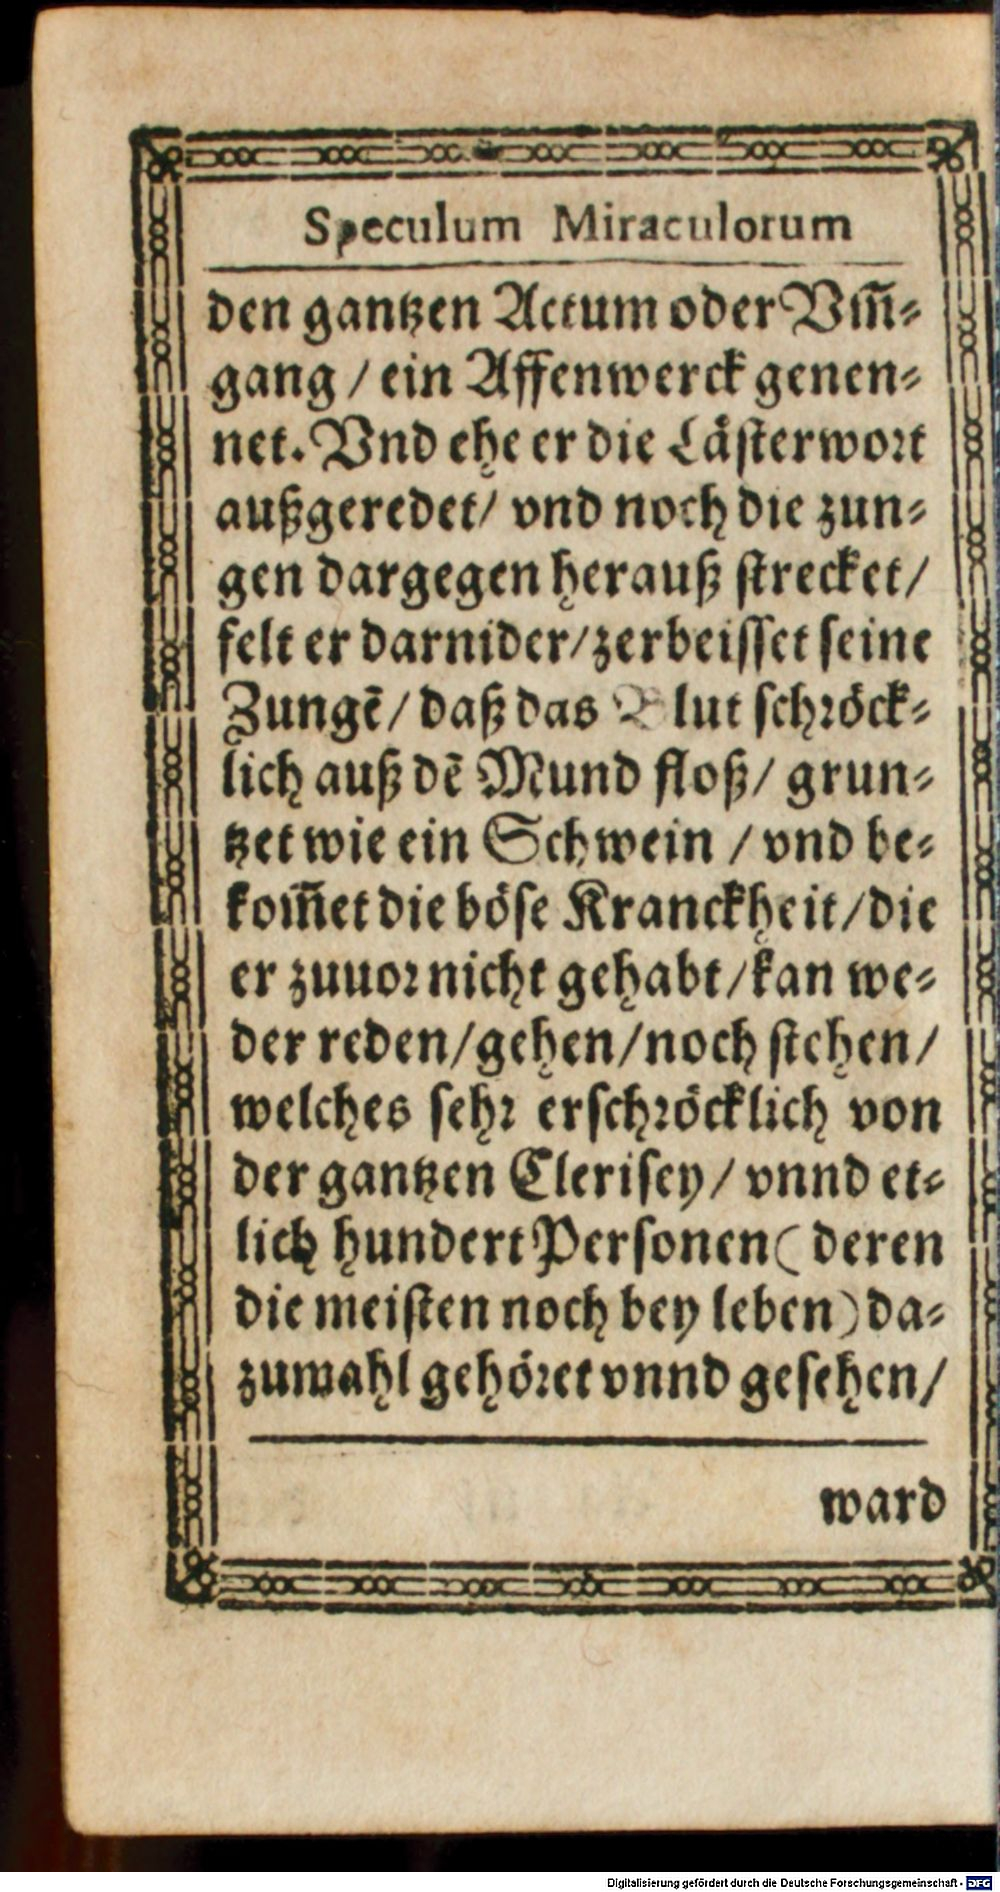 Speculum Miraculorum
den gantzen Actum oder Vm̃-
gang / ein Affenwerck genen-
net. Vnd ehe er die Lästerwort
außgeredet / vnd noch die zun-
gen dargegen herauß strecket /
felt er darnider / zerbeisset seine
Zungẽ / daß das Blut schröck-
lich auß dẽ Mund floß / grun-
tzet wie ein Schwein / vnd be-
kom̃et die böse Kranckheit / die
er zuuor nicht gehabt / kan we-
der reden / gehen / noch stehen /
welches sehr erschröcklich von
der gantzen Clerisey / vnnd et-
lich hundert Personen ( deren
die meisten noch bey leben ) da-
zumahl gehöret vnnd gesehen /
ward
Digitalisierung gefördert durch die Deutsche Forschungsgemeinschaft - DFG